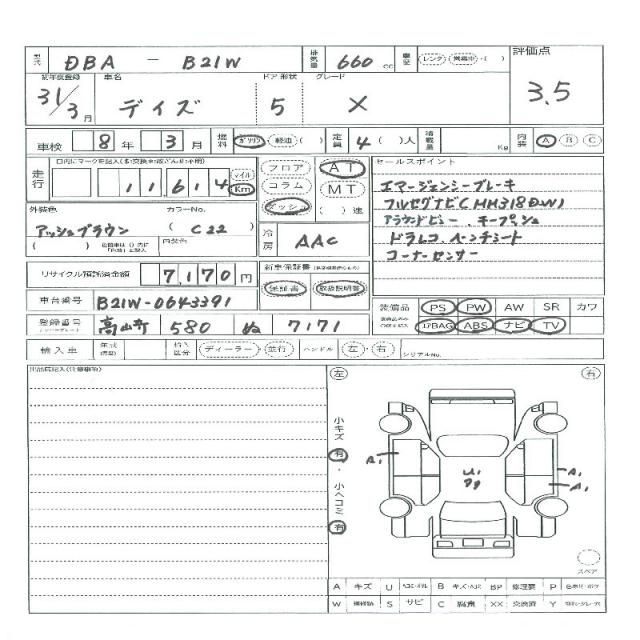 型式 DBA - B21W 排気量 660 cc 車歴 レンタ・営業中・( ) 評価点
初年度登録 車名 ドア 形状 グレード
31/3月 デイズ 5 X 3.5
車検 8年 3月 燃料 ガソリン・軽油( ) 定員 4( )人 積載量 Kg 内装 A B C
走行 11,614 マイル Km フロア AT セールスポイント
コラム MT
ダッシュ ( )速
エマージェンシーブレーキ
フルセグナビ(MM318D-W)
アラウンドビュー、キープッシュ
ドラレコ、ベンチシート
コーナーセンサー
外装色 カラーNo.
アッシュブラウン (C22) 冷房 AAC
( ) 内装色
リサイクル預託済金額 7,170円 新車保証書
保証書 取扱説明書
車台番号 B21W-0643391 装備品 PS PW AW SR カワ
登録番号 580 ぬ 7171 AIRBAG ABS ナビ TV
輸入車 年式 輸入区分 ディーラー・並行 ハンドル 左・右 シリアルNo.
左 右
小キズ 有・小ヘコミ 有
A1 U1 A1
A1
スペア
A キズ U B BP 修理要 P
W S サビ C 腐食 XX 交換済 Y